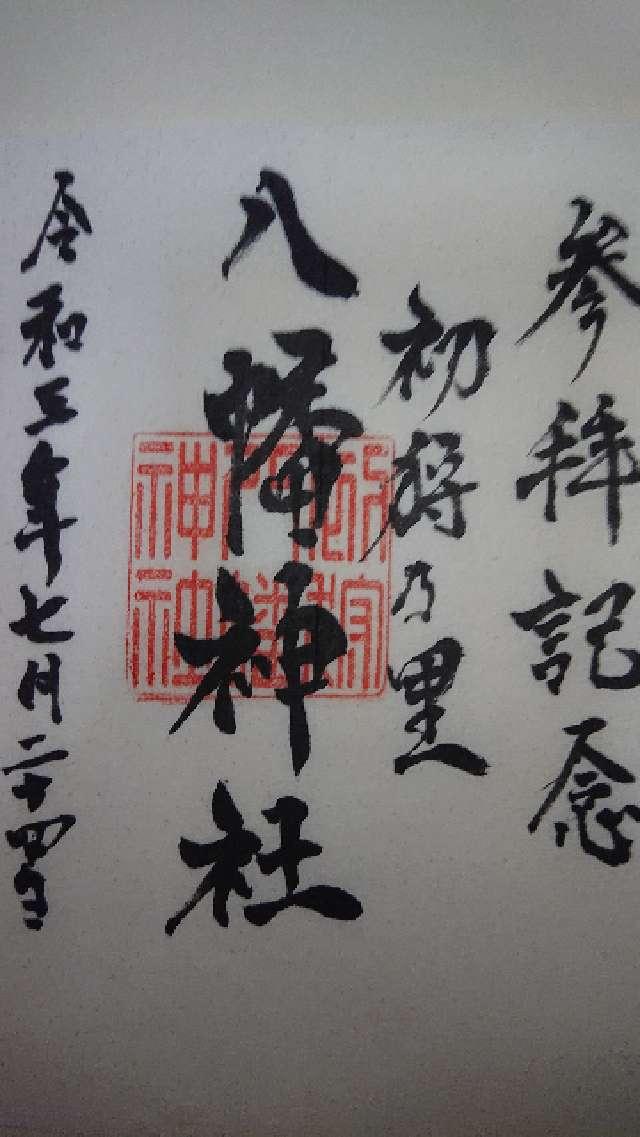 参拝記念
初狩乃里
八幡神社
令和三年七月二十四日